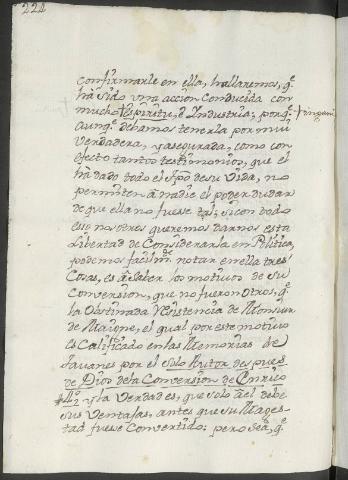 224
confirmarle en ella, hallaremos, q.e
há sido una accion conducida con
mucho espiritu, é Industria; porq.e
aunq.e debamos tenerla por mui
verdadera, y asegurada, como con
efecto tantos testimonios, que el
há dado todo el tpo de su Vida, no
permiten á nadie el poder dudar
de que ella no fuese tal; si con todo
eso nosotros queremos darnos esta
Libertad de Considerarla en Politica,
podemos facilm.te notar en ella tres
Cosas, es á saber los motivos de su
Conversion, que no fueron otros, q.e
la Obstinada Resistencia de Monsiur
de Maiene, el qual por este motivo
es Calificado en las Memorias de
Tavanes por el solo Autor despues
de Dios de la Conversion de Enrico
y la Verdad es, que solo á el debe
sus Ventajas, antes que su Mages-
tad fuese Convertido: pero sea, q.e